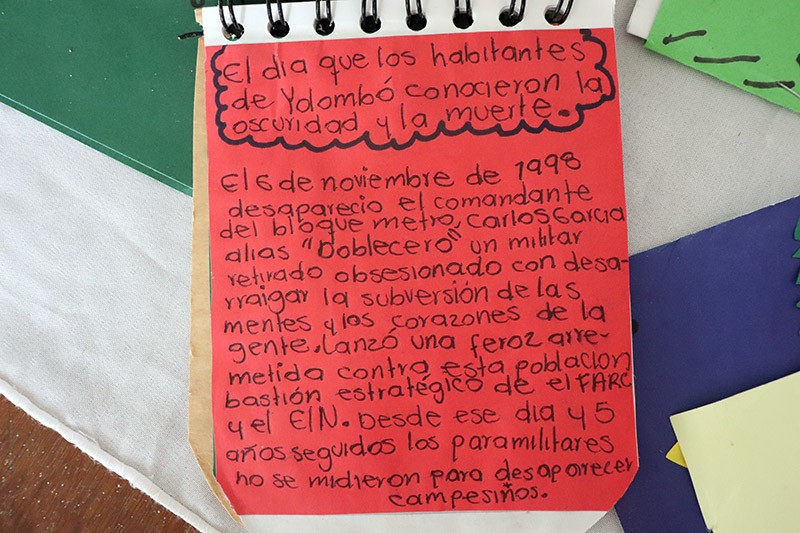 El dia que los habitantes
de Yolombó conocieron la
oscuridad y la muerte.
El 6 de noviembre de 1998
desaparecio el comandante
del bloque metro, Carlos Garcia
alias "Doblecero" un militar
retirado obsesionado con desa-
rraigar la subversión de las
mentes y los corazones de la
gente. Lanzó una feroz arre-
metida contra esta población
bastión estratégico de el FARC
y el ElN. Desde ese dia y 5
años seguidos los paramilitares
no se midieron para desaparecer
campesiños.